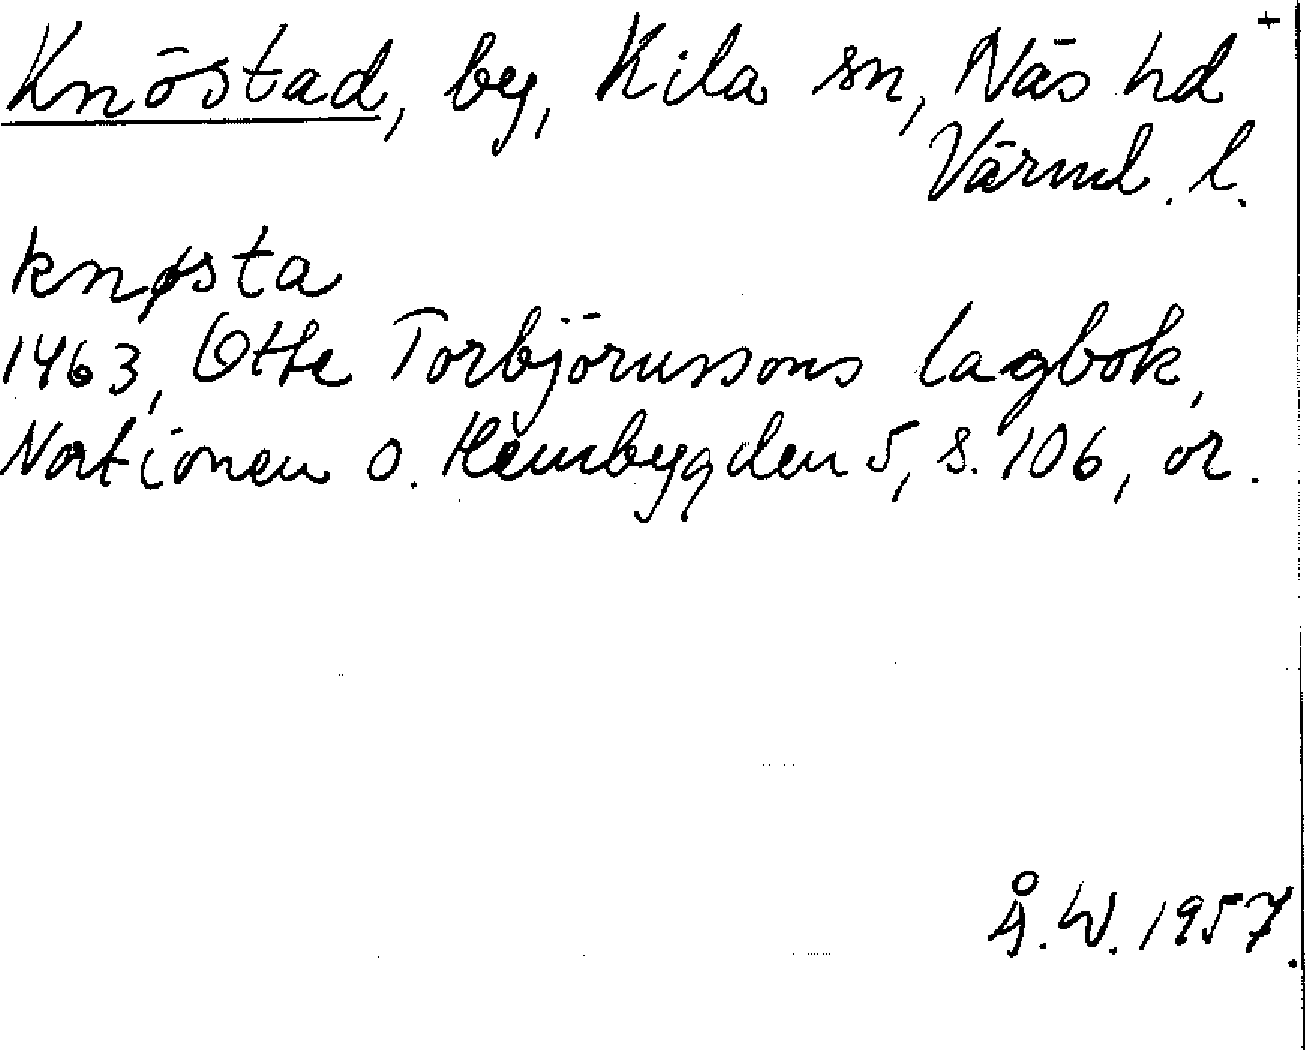 Knöstad, by, Kila sn, Näs hd +
Värml. l.
knøsta
1463, Otte Torbjörnssons lagbok,
Nationen o. Hembygden 5, s. 106, or.
Å.W. 1957.